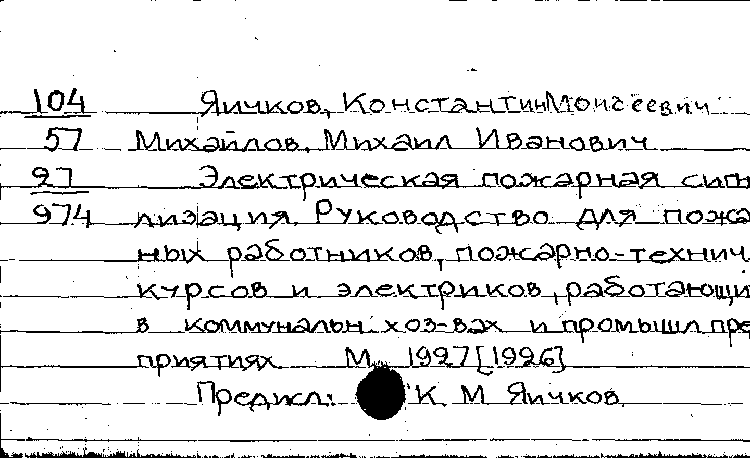 104 Яичков, Константин Моисеевич
57 Михайлов, Михаил Иванович
27 Электрическая пожарная сигн
974 лизация. Руководство для пожа
ных работников, пожарно-технич.
курсов и электриков, работающи
в коммунальн. хоз-вах и промышл пре
приятиях М., 1927 [1926]
Предисл: К. М Яичков.